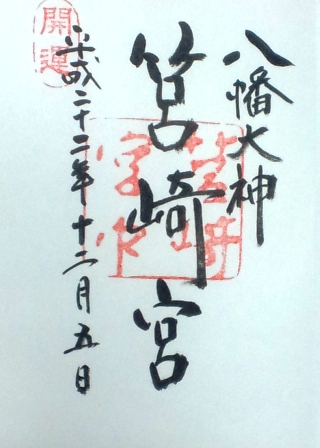 八幡大神
筥崎宮
平成二十二年十二月五日
開運